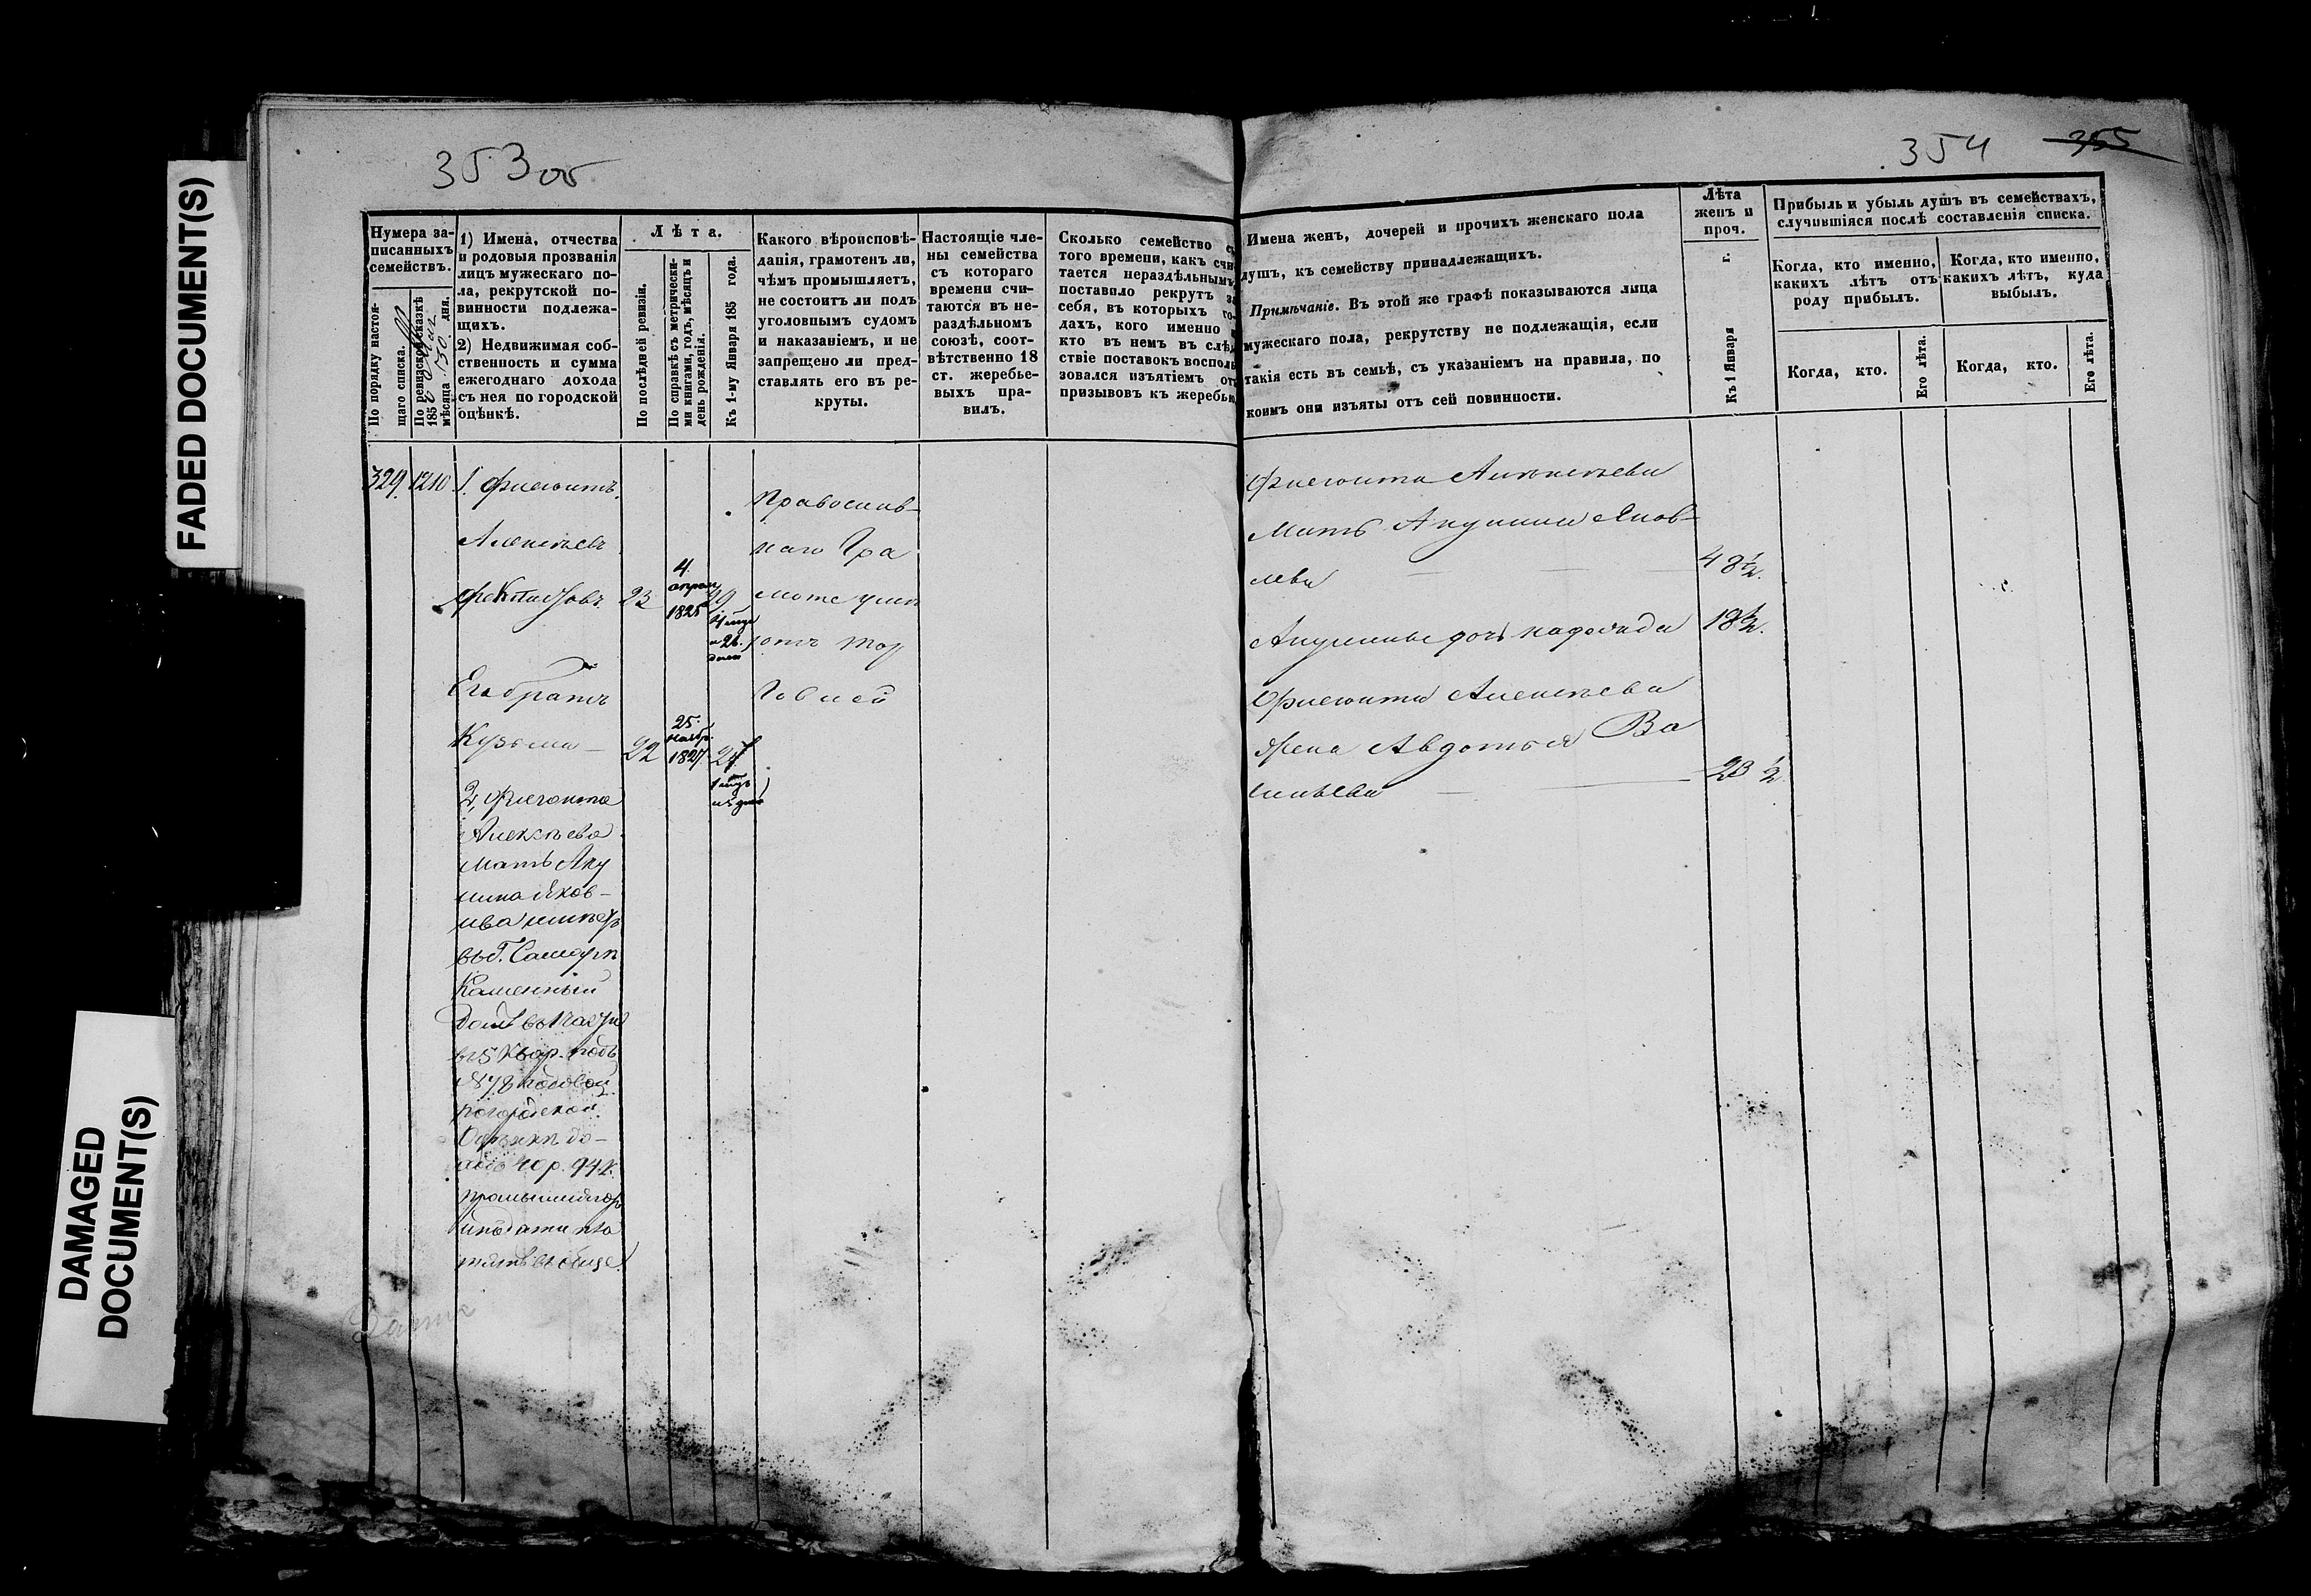 FADED DOCUMENT(S)
DAMAGED
DOCUMENT(S)
353об
Нумера за-
писанныхъ
семействъ.
По порядку настоя-
щаго списка.
По ревизской сказкѣ
185 0 года
мѣсяца 30 дня.
1) Имена, отчества
и родовыя прозванія
лицъ мужескаго по-
ла, рекрутской по-
винности подлежа-
щихъ.
2) Недвижимая соб-
ственность и сумма
ежегоднаго дохода
съ нея по городской
оцѣнкѣ.
Лѣта.
По послѣдней ревизіи.
По справкѣ съ метрически-
ми книгами, годъ, мѣсяцъ и
день рожденія.
Къ 1-му Января 185 года.
Какого вѣроисповѣ-
данія, грамотенъ ли,
чѣмъ промышляетъ,
не состоитъ ли подъ
уголовнымъ судомъ
и наказаніемъ, и не
запрещено ли пред-
ставлять его въ ре-
круты.
Настоящіе чле-
ны семейства
съ котораго
времени счи-
таются въ не-
раздѣльномъ
союзѣ, соот-
вѣтственно 18
ст. жеребье-
выхъ пра-
вилъ.
Сколько семейство съ
того времени, какъ счи-
тается нераздѣльнымъ
поставило рекрутъ за
себя, въ которыхъ го-
дахъ, кого именно и
кто въ немъ въ слѣд-
ствіе поставокъ восполь-
зовался изъятіемъ отъ
призывовъ къ жеребью
329. 1210 1. Филогитъ
Алексѣевъ
Феклистовъ 23
4
апреля
1825
29
(4 мѣс
и 26
дней
Православ-
наго Гра
мотѣ умѣ
етъ Тор
говлей
Его братъ
Кузьма 22
25
Ноябр.
1827
27
(1 мѣс
и 5 дней)
2, Филогита
Алексѣева
мать Аку
лина Яков-
лева имѣетъ
въ Г. Самарѣ
Каменный
домъ въ 1 части
въ 5 квар. подъ
№ 78
по городской
Оцѣнкѣ до-
40 р. 94 к.
подати пла
тятъ въ обще
354 355
Имена женъ, дочерей и прочихъ женскаго пола
душъ, къ семейству принадлежащихъ.
Примѣчаніе. Въ этой же графѣ показываются лица
мужескаго пола, рекрутству не подлежащія, если
такія есть въ семьѣ, съ указаніемъ на правила, по
коимъ они изъяты отъ сей повинности.
Лѣта
женъ и
проч.
Къ 1 Января г.
Прибыль и убыль душъ въ семействахъ,
случившіяся послѣ составленія списка.
Когда, кто именно,
какихъ лѣтъ отъ
роду прибылъ.
Когда, кто именно,
какихъ лѣтъ, куда
выбылъ.
Когда, кто.
Его лѣта.
Когда, кто.
Его лѣта.
Филогита Алексѣева
Мать Акулина Яков-
лева 48 1/2.
Акулины дочь Надежда 18 1/2.
Филогита Алексѣева
Жена Авдотья Ва
сильева 23 1/2